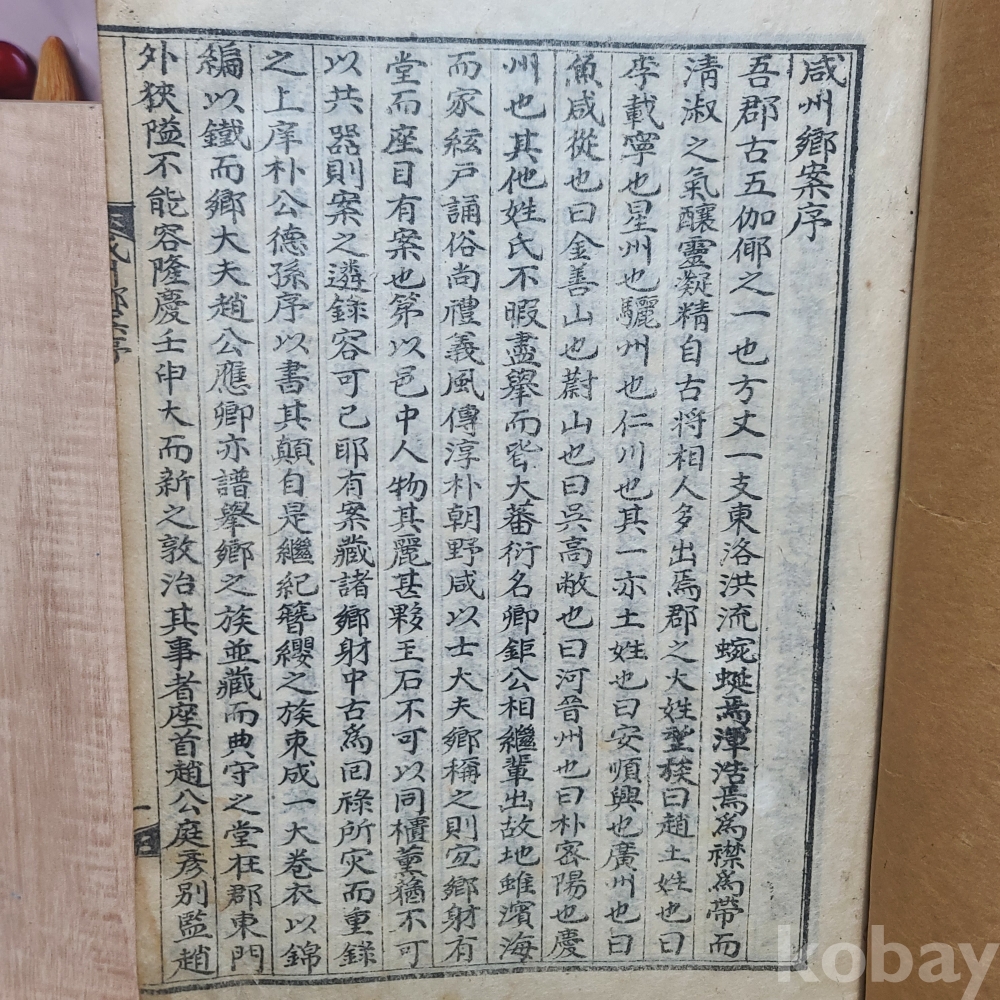 咸州鄉案序
吾郡古五伽倻之一也方丈一支東洛洪流蜿蜒焉渾浩焉爲襟爲帶而
淸淑之氣釀靈凝精自古將相人多出焉郡之大姓望族曰趙土姓也曰
李載寧也星州也驪州也仁川也其一亦土姓也曰安順興也廣州也曰
魚咸從也曰金善山也蔚山也曰吳高敞也曰河晉州也曰朴密陽也慶
州也其他姓氏不暇盡擧而皆大蕃衍名卿鉅公相繼輩出故地雖濱海
而家絃戶誦俗尙禮義風傳淳朴朝野咸以士大夫鄉稱之則宜鄉射有
堂而座目有案也第以邑中人物其麗甚夥玉石不可以同櫃薰蕕不可
以共器則案之遴錄容可已耶有案藏諸鄉射中古爲回祿所灾而重錄
之上庠朴公德孫序以書其顚自是繼紀簪纓之族束成一大卷衣以錦
編以鐵而鄉大夫趙公應卿亦譜擧鄉之族並藏而典守之堂在郡東門
外狹隘不能容隆慶壬申大而新之敦治其事者座首趙公庭彥別監趙
一
kobay